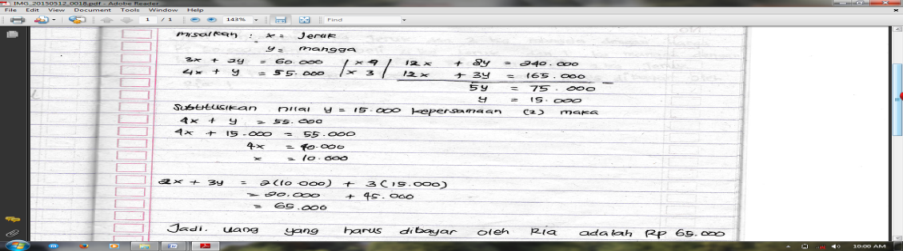 IMG_20150512_0018.pdf - Adobe Reader
File Edit View Document Tools Window Help
1 / 1 143% Find
misalkan : x = Jeruk
y = mangga
3x + 2y = 60.000 | x 4 | 12x + 8y = 240.000
4x + y = 55.000 | x 3 | 12x + 3y = 165.000
5y = 75.000
y = 15.000
Substitusikan nilai y = 15.000 kepersamaan (2) maka
4x + y = 55.000
4x + 15.000 = 55.000
4x = 40.000
x = 10.000
2x + 3y = 2(10.000) + 3(15.000)
= 20.000 + 45.000
= 65.000
Jadi. uang yang harus dibayar oleh Ria adalah Rp 65.000
10:00 AM